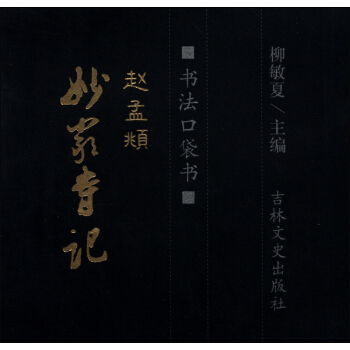 柳敏夏/主编
吉林文史出版社
书法口袋书
赵孟頫
妙严寺记